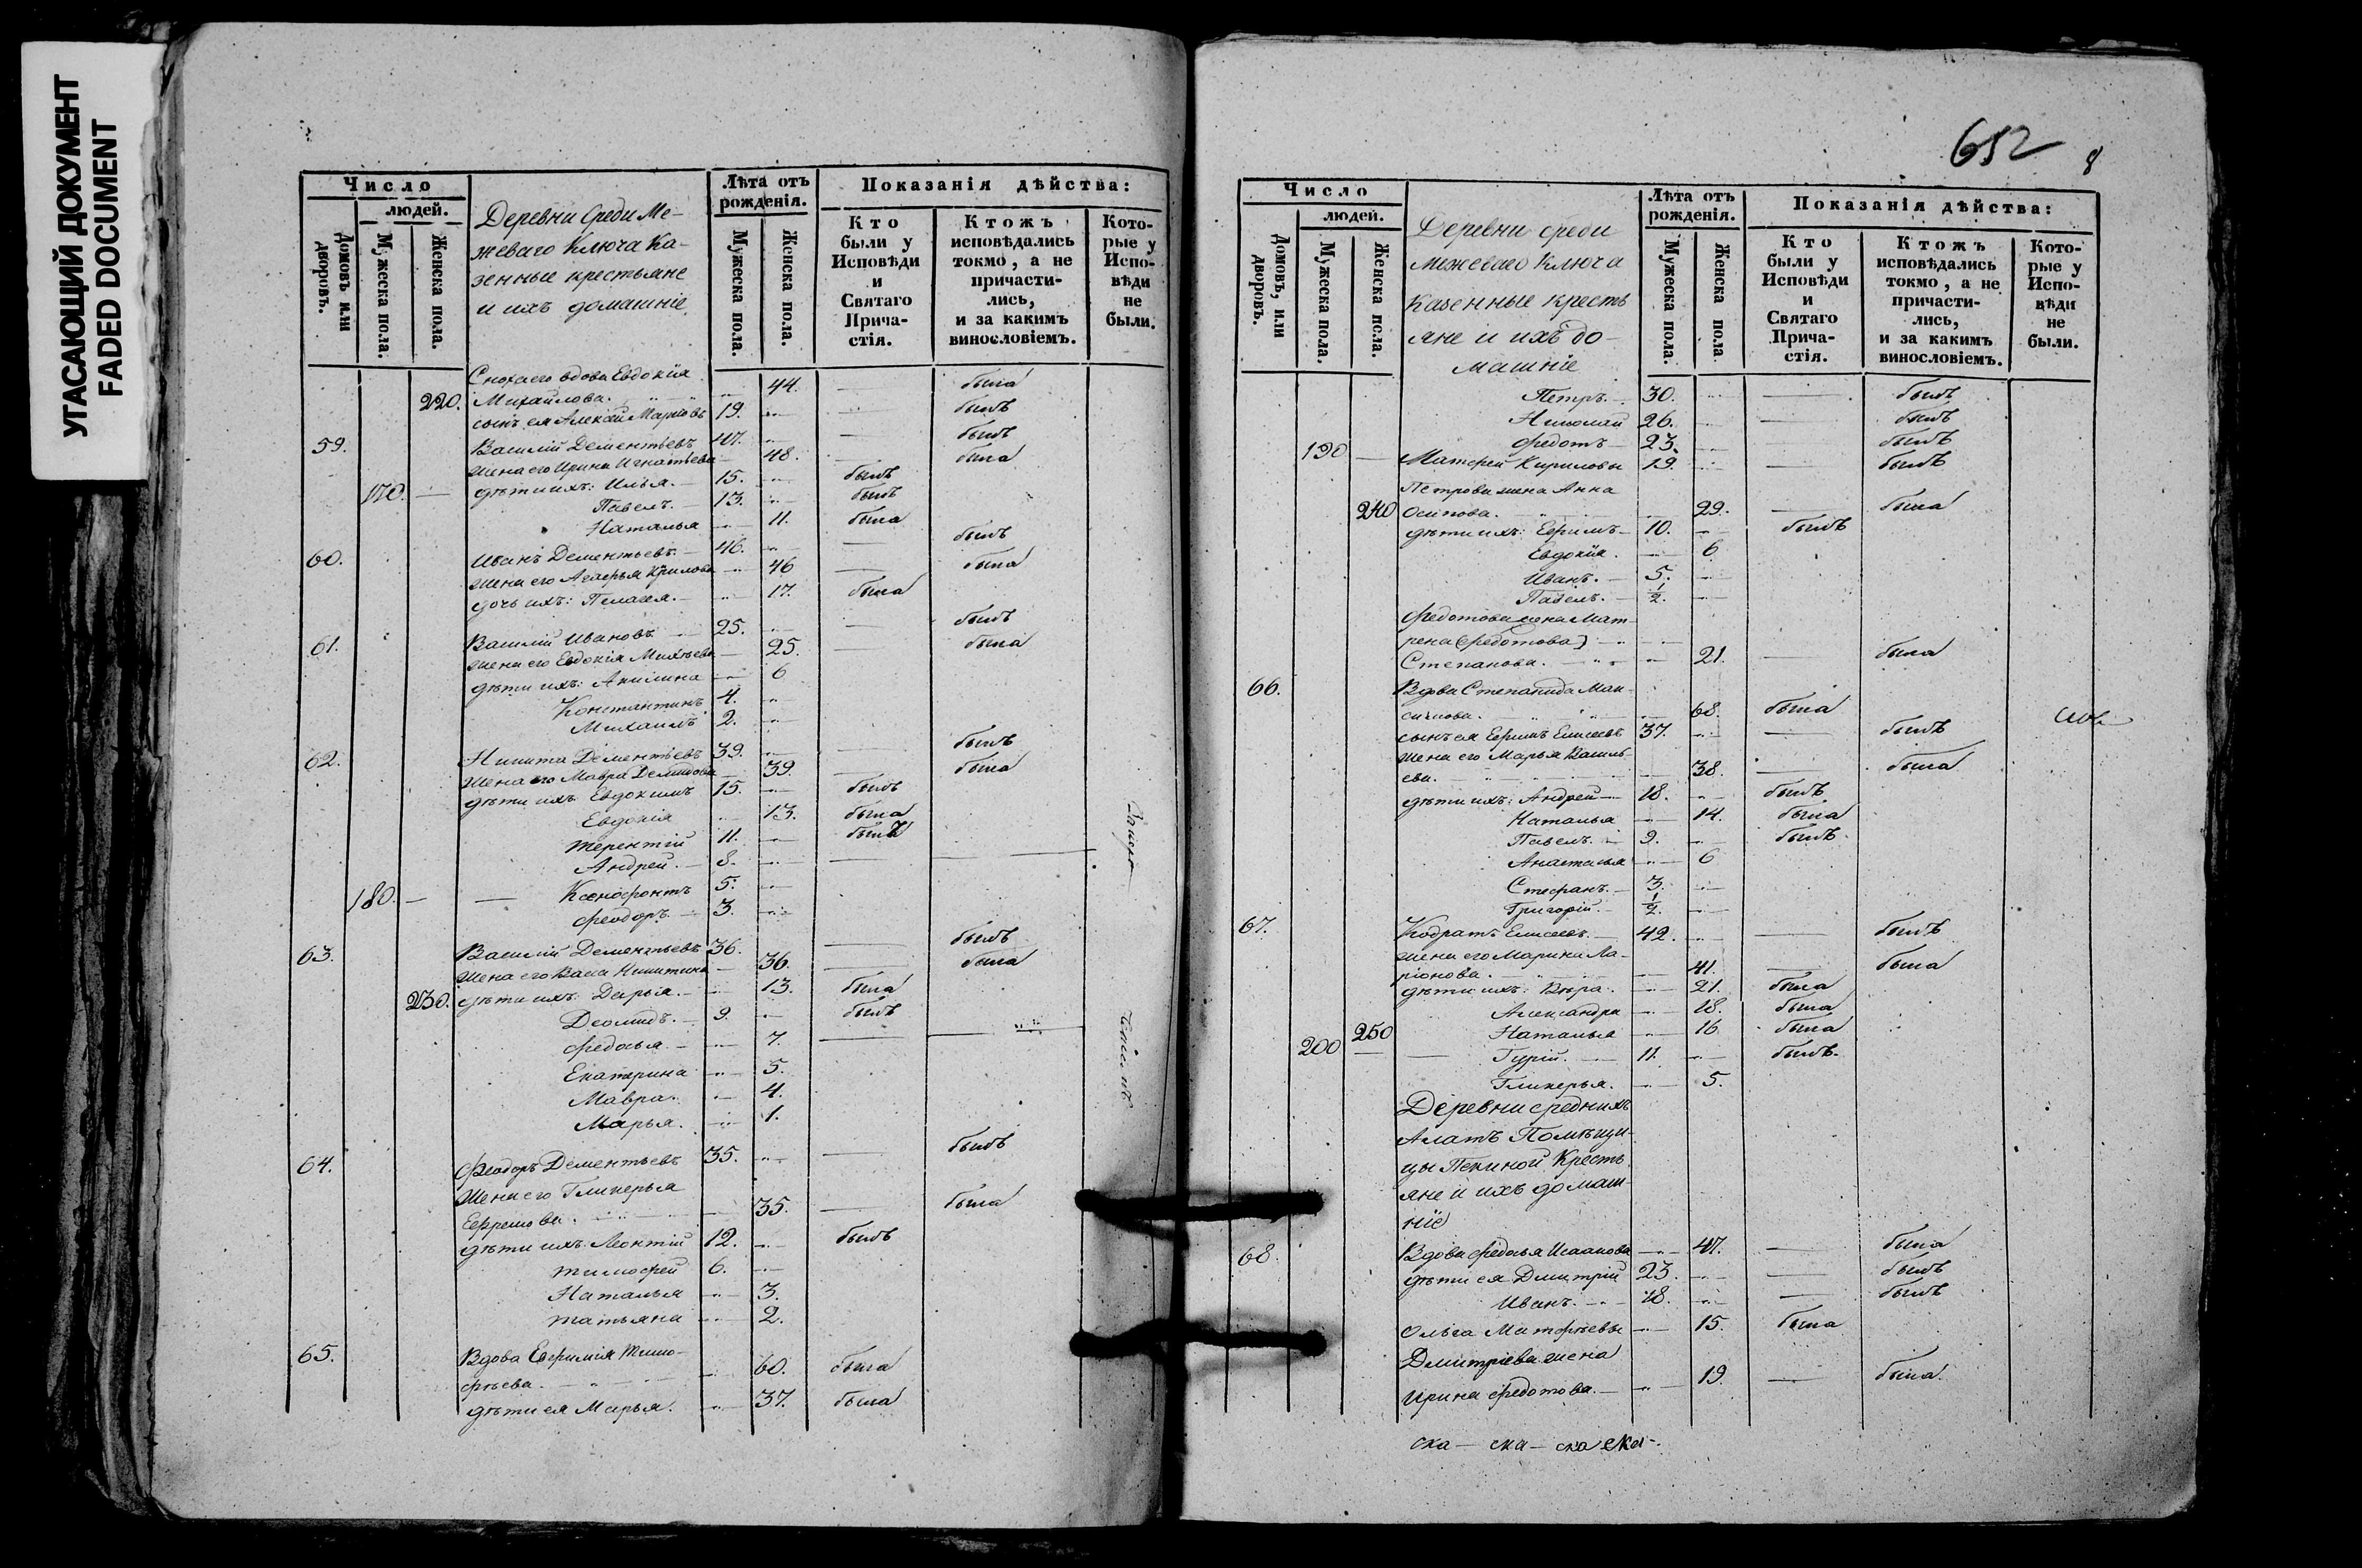 УГАСАЮЩИЙ ДОКУМЕНТ
FADED DOCUMENT
Число
людей.
Домовъ или дворовъ.
Мужеска пола.
Женска пола.
Деревни Среди Ме-
жеваго Ключа Ка-
зенные крестьяне
и ихъ домашніе.
Лѣта отъ рожденія.
Мужеска пола.
Женска пола.
Показанія дѣйства:
Кто были у Исповѣди и Святаго Прича-стія.
Ктожъ исповѣдались токмо, а не причасти-лись, и за какимъ винословіемъ.
Кото-рые у Испо-вѣди не были.
Сноха его вдова Евдокія
220. Михайлова. 44. была
сынъ ея Алексѣй Марковъ 19. былъ
59. Василій Дементьевъ 47. былъ
жена его Ирина Игнатьева 48. была
170. дѣти ихъ: Илья. 15. былъ
Павелъ. 13. былъ
Наталья 11. была
60. Иванъ Дементьевъ. 46. былъ
жена его Агафья Кирилова 46 была
дочь ихъ: Пелагея. 17. была
61. Василій Ивановъ 25. былъ
жена его Евдокія 25. была
дѣти ихъ: Акилина 6
Константинъ 4.
Михаилъ 2.
62. Никита Дементьевъ 39. былъ
жена его Мавра Демидова 39. была
дѣти ихъ Евдокимъ 15. былъ
Евдокія 13. была
Терентій 11. былъ
Андрей. 8.
180. Ксенофонтъ 5.
Феодоръ. 3.
63. Василій Дементьевъ 36. былъ
жена его Васа Никитина 36. была
230. дѣти ихъ: Дарья. 13. была
Деомидъ. 9. былъ
Федосья. 7.
Екатерина 5.
Мавра. 4.
Марья. 1.
64. Феодоръ Дементьевъ 35. былъ
жена его Гликерья
Ефремова. 35. была
дѣти ихъ: Леонтій 12. былъ
Тимофей 6.
Наталья 3.
Татьяна 2.
65. Вдова Евфимія Тимо-
фѣева. 60. была
дѣти ея Марья. 37. была
652
8
Число
людей.
Домовъ, или дворовъ.
Мужеска пола.
Женска пола.
Деревни среди
межеваго Ключа
Казенные кресть
яне и ихъ до-
машніе
Лѣта отъ рожденія.
Мужеска пола.
Женска пола
Показанія дѣйства:
Кто были у Исповѣди и Святаго Прича-стія.
Ктожъ исповѣдались токмо, а не причасти-лись, и за какимъ винословіемъ.
Кото-рые у Испо-вѣди не были.
Петръ. 30. былъ
Николай 26. былъ
Федотъ 23. былъ
190 Матфей Кириловы 19. былъ
Петрова жена Анна
240 Осипова. 29. была
дѣти ихъ: Ефимъ 10. былъ
Евдокія. 6.
Иванъ. 5.
Павелъ. 1/2.
Федотова жена Мат
рена (Федотова)
Степанова. 21. была
66. Вдова Степанида Мак
симова. 68. была
сынъ ея Ефимъ Елисеевъ 37. былъ
жена его Марья Василь-
ева. 38. была
дѣти ихъ: Андрей 18. былъ
Наталья 14. была
Павелъ. 9. былъ
Анастасья 6
Стефанъ. 3.
Григорій. 1/2.
67. Кодратъ Елисеевъ. 42. былъ
жена его Марина Ла-
ріонова. 41. была
дѣти ихъ: Вѣра. 21. была
Александра 18. была
250 Наталья 16. была
200 Гурій. 11. былъ
Гликерья. 5.
Деревни среднихъ
Алатъ Помѣщи-
цы Пекиной Кресть
яне и ихъ домаш-
ніе
68. Вдова Федосья Исаакова 47. была
дѣти ея Дмитрій 23. былъ
Иванъ. 18. былъ
Ольга Матфѣевы 15. была
Дмитріева жена
Ирина Федотова. 19. была
ска — ска — ска ска —